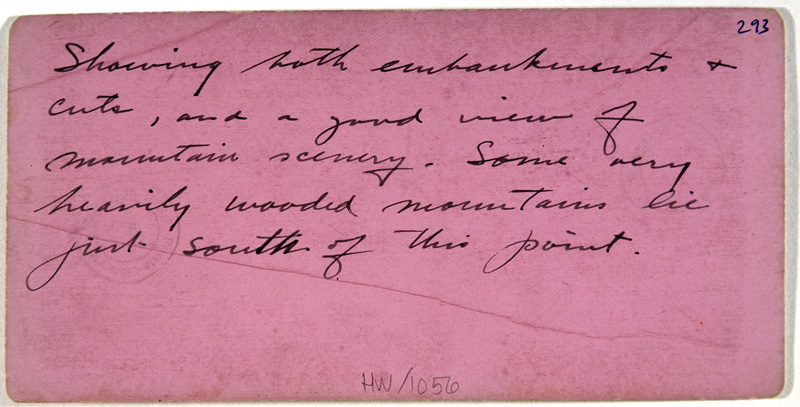 293
Showing both embankments +
cuts, and a good view of
mountain scenery. Some very
heavily wooded mountains lie
just south of this point.
HW/1056